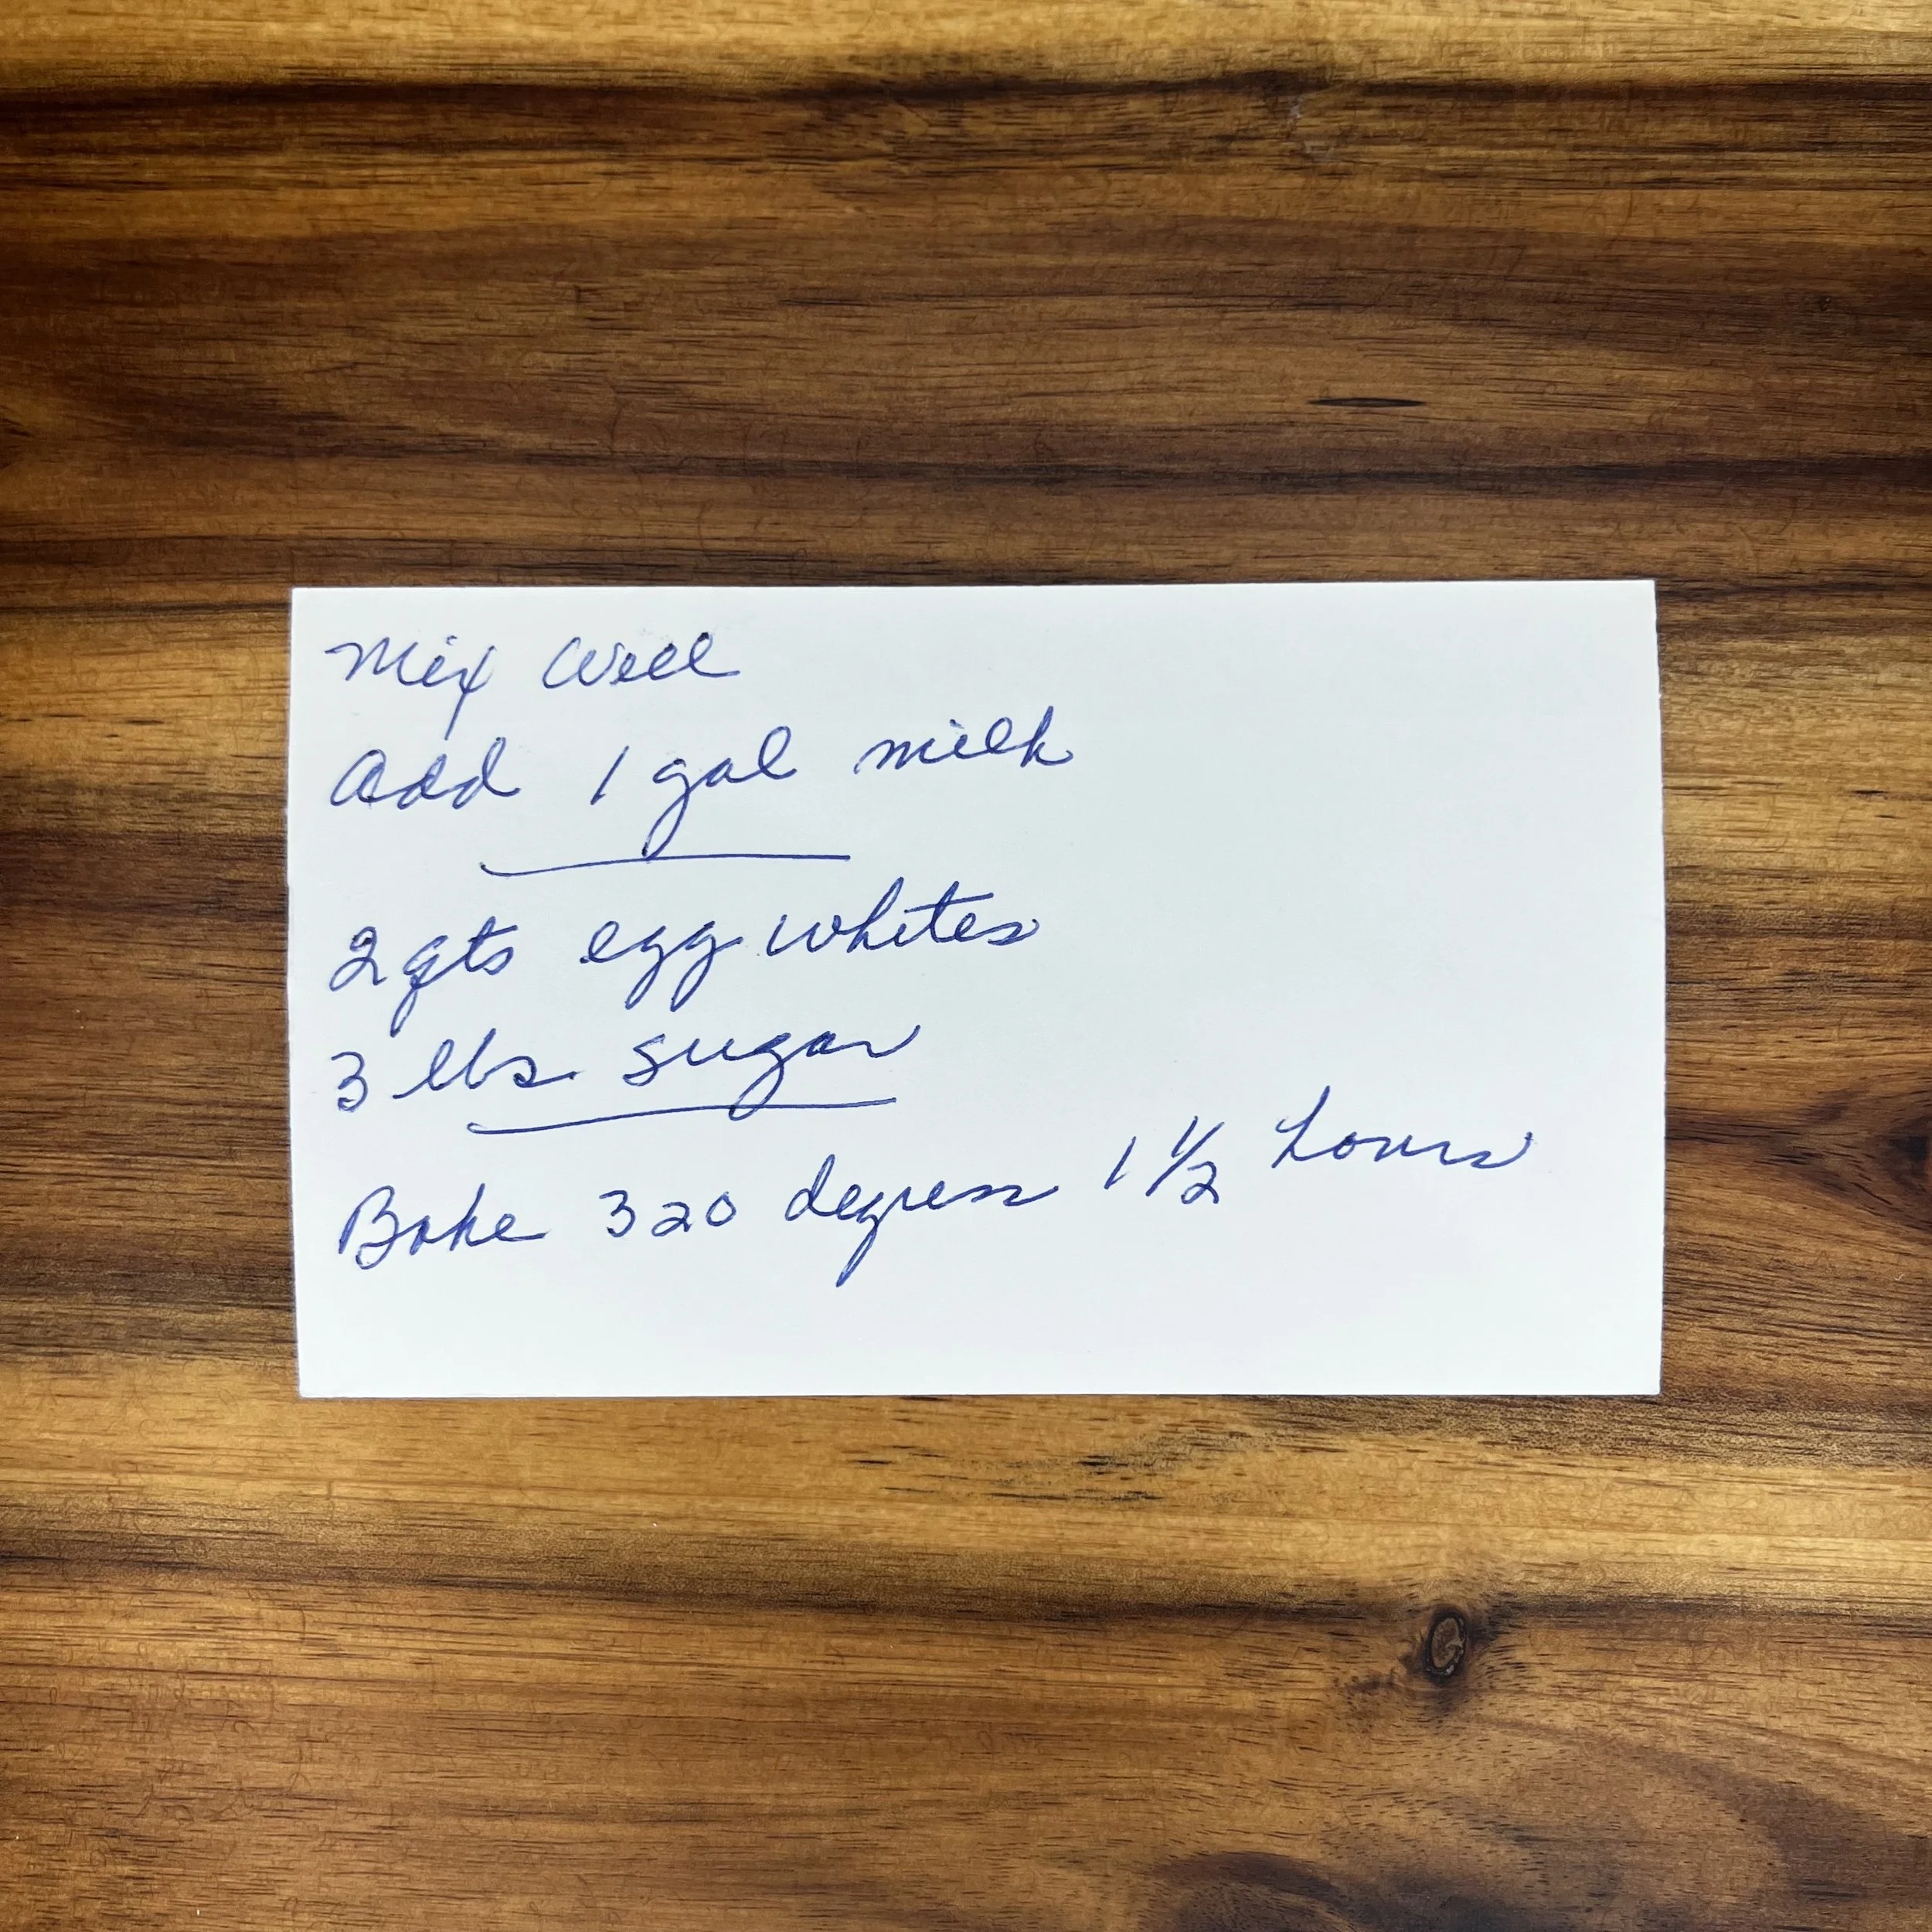 Mix Well
Add 1 gal milk
2 qts egg whites
3 lbs. sugar
Bake 320 degrees 1 1/2 hours